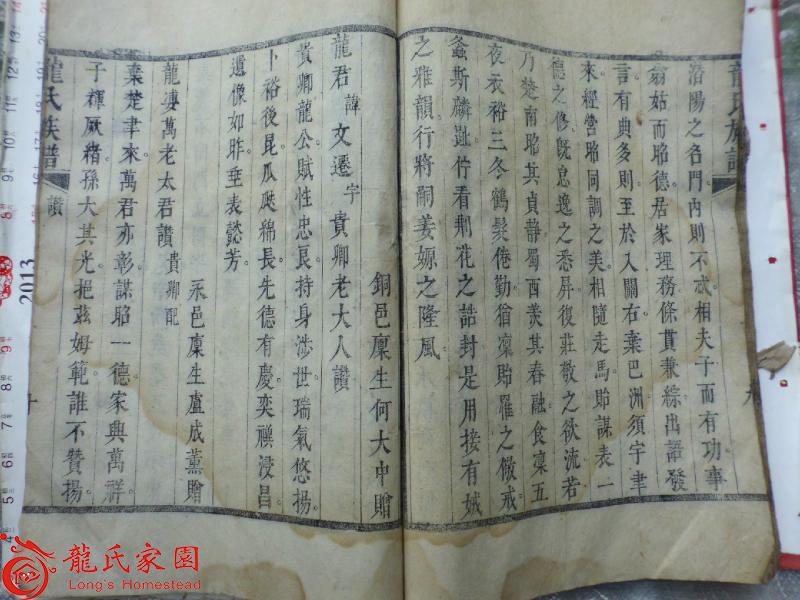 洛陽之名門內則不忒相夫子而有功事
翁姑而昭德居家理務條貫兼綜出語發
言有典多則至於入關右棄巴洲須宇聿
來經營昭同調之美相隨走馬貽謀表一
德之修既息逸之悉屏復莊敬之欲流若
乃楚南昭其貞靜蜀酉羨其春融食稟五
夜衣裕三冬鶴髮倦勤猶凜貽罹之儆戒
螽斯麟趾佇看荆花之誥封是用接有娀
之雅韻行將嗣姜嫄之隆風
銅邑廩生何大中贈
龍君諱文遷字貴卿老大人讚
貴卿龍公賦性忠良持身涉世瑞氣悠揚
卜裕後昆瓜瓞綿長先德有慶奕禩浸昌
遺像如昨垂表懿芳
永邑廩生盧成薰贈
龍婆萬老太君讚貴卿配
棄楚聿來萬君亦彰謀昭一德家興萬祥
子輝厥緒孫大其光挹茲姆範誰不贊揚
龍氏族譜
讚
十
龍氏族譜
九
2013
龍氏家園
Long's Homestead